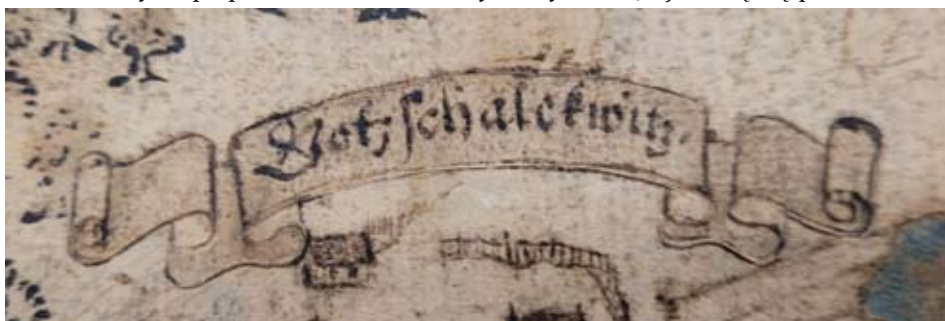 Gotzſchalckwitz.